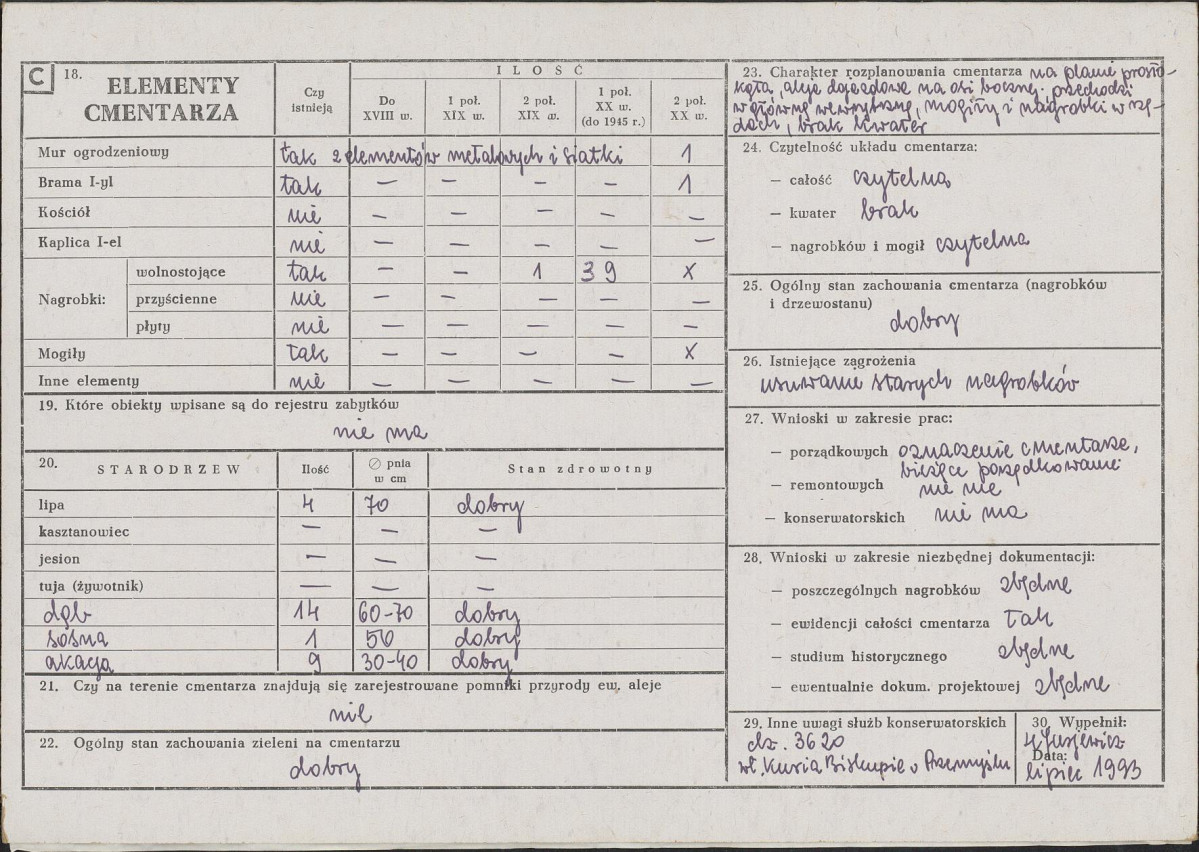 C 18. ELEMENTY CMENTARZA
Czy istnieją
ILOŚĆ
Do XVIII w.
1 poł. XIX w.
2 poł. XIX w.
1 poł. XX w. (do 1945 r.)
2 poł. XX w.
Mur ogrodzeniowy tak z elementów metalowych i siatki 1
Brama I-yl tak — — — — 1
Kościół nie — — — — —
Kaplica I-el nie — — — — —
Nagrobki: wolnostojące tak — — 1 39 X
przyścienne nie — — — — —
płyty nie — — — — —
Mogiły tak — — — — X
Inne elementy nie — — — — —
19. Które obiekty wpisane są do rejestru zabytków
nie ma
20. STARODRZEW Ilość ∅ pnia w cm Stan zdrowotny
lipa 4 70 dobry
kasztanowiec — — —
jesion — — —
tuja (żywotnik) — — —
dąb 14 60-70 dobry
sosna 1 50 dobry
akacja 9 30-40 dobry
21. Czy na terenie cmentarza znajdują się zarejestrowane pomniki przyrody ew. aleje
nie
22. Ogólny stan zachowania zieleni na cmentarzu
dobry
23. Charakter rozplanowania cmentarza na planie prosto-
kąta, aleje dojazdowe na osi bocznej. przechodzi
w główną wewnętrzną, mogiły i nagrobki w rzę-
dach, brak kwater
24. Czytelność układu cmentarza:
— całość czytelna
— kwater brak
— nagrobków i mogił czytelna
25. Ogólny stan zachowania cmentarza (nagrobków
i drzewostanu)
dobry
26. Istniejące zagrożenia
usuwanie starych nagrobków
27. Wnioski w zakresie prac:
— porządkowych oznaczenie cmentarza,
bieżące porządkowanie
— remontowych nie
— konserwatorskich nie ma
28. Wnioski w zakresie niezbędnej dokumentacji:
— poszczególnych nagrobków zbędne
— ewidencji całości cmentarza tak
— studium historycznego zbędne
— ewentualnie dokum. projektowej zbędne
29. Inne uwagi służb konserwatorskich
dz. 3620
wł. Kuria Biskupia w Przemyślu
30. Wypełnił:
Data:
lipiec 1993